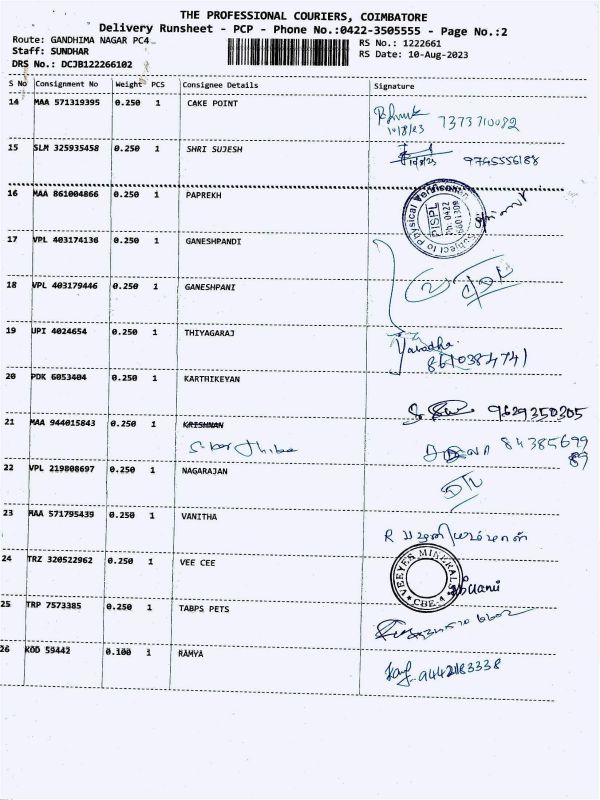 THE PROFESSIONAL COURIERS, COIMBATORE
Delivery Runsheet - PCP - Phone No.:0422-3505555 - Page No.:2
Route: GANDHIMA NAGAR PC4
RS No.: 1222661
Staff: SUNDHAR
RS Date: 10-Aug-2023
DRS No.: DCJB122266102
S No Consignment No Weight PCS Consignee Details Signature
14 MAA 571319395 0.250 1 CAKE POINT
10/8/23 7373710082
15 SLM 325935458 0.250 1 SHRI SUJESH 9745556188
16 MAA 861004866 0.250 1 PAPREKH
Subject to Physical Verification
PISPL
17 VPL 403174136 0.250 1 GANESHPANDI
18 VPL 403179446 0.250 1 GANESHPANI
19 UPI 4024654 0.250 1 THIYAGARAJ
Yavadha
8610384741
20 PDK 6053404 0.250 1 KARTHIKEYAN 9629350305
21 MAA 944015843 0.250 1 KRISHNAN
84385699
89
22 VPL 219808697 0.250 1 NAGARAJAN
23 MAA 571795439 0.250 1 VANITHA
24 TRZ 320522962 0.250 1 VEE CEE
VEEYES MINERALS
CBE-4
25 TRP 7573385 0.250 1 TABPS PETS
26 KOD 59442 0.100 1 RAMYA
9442183338